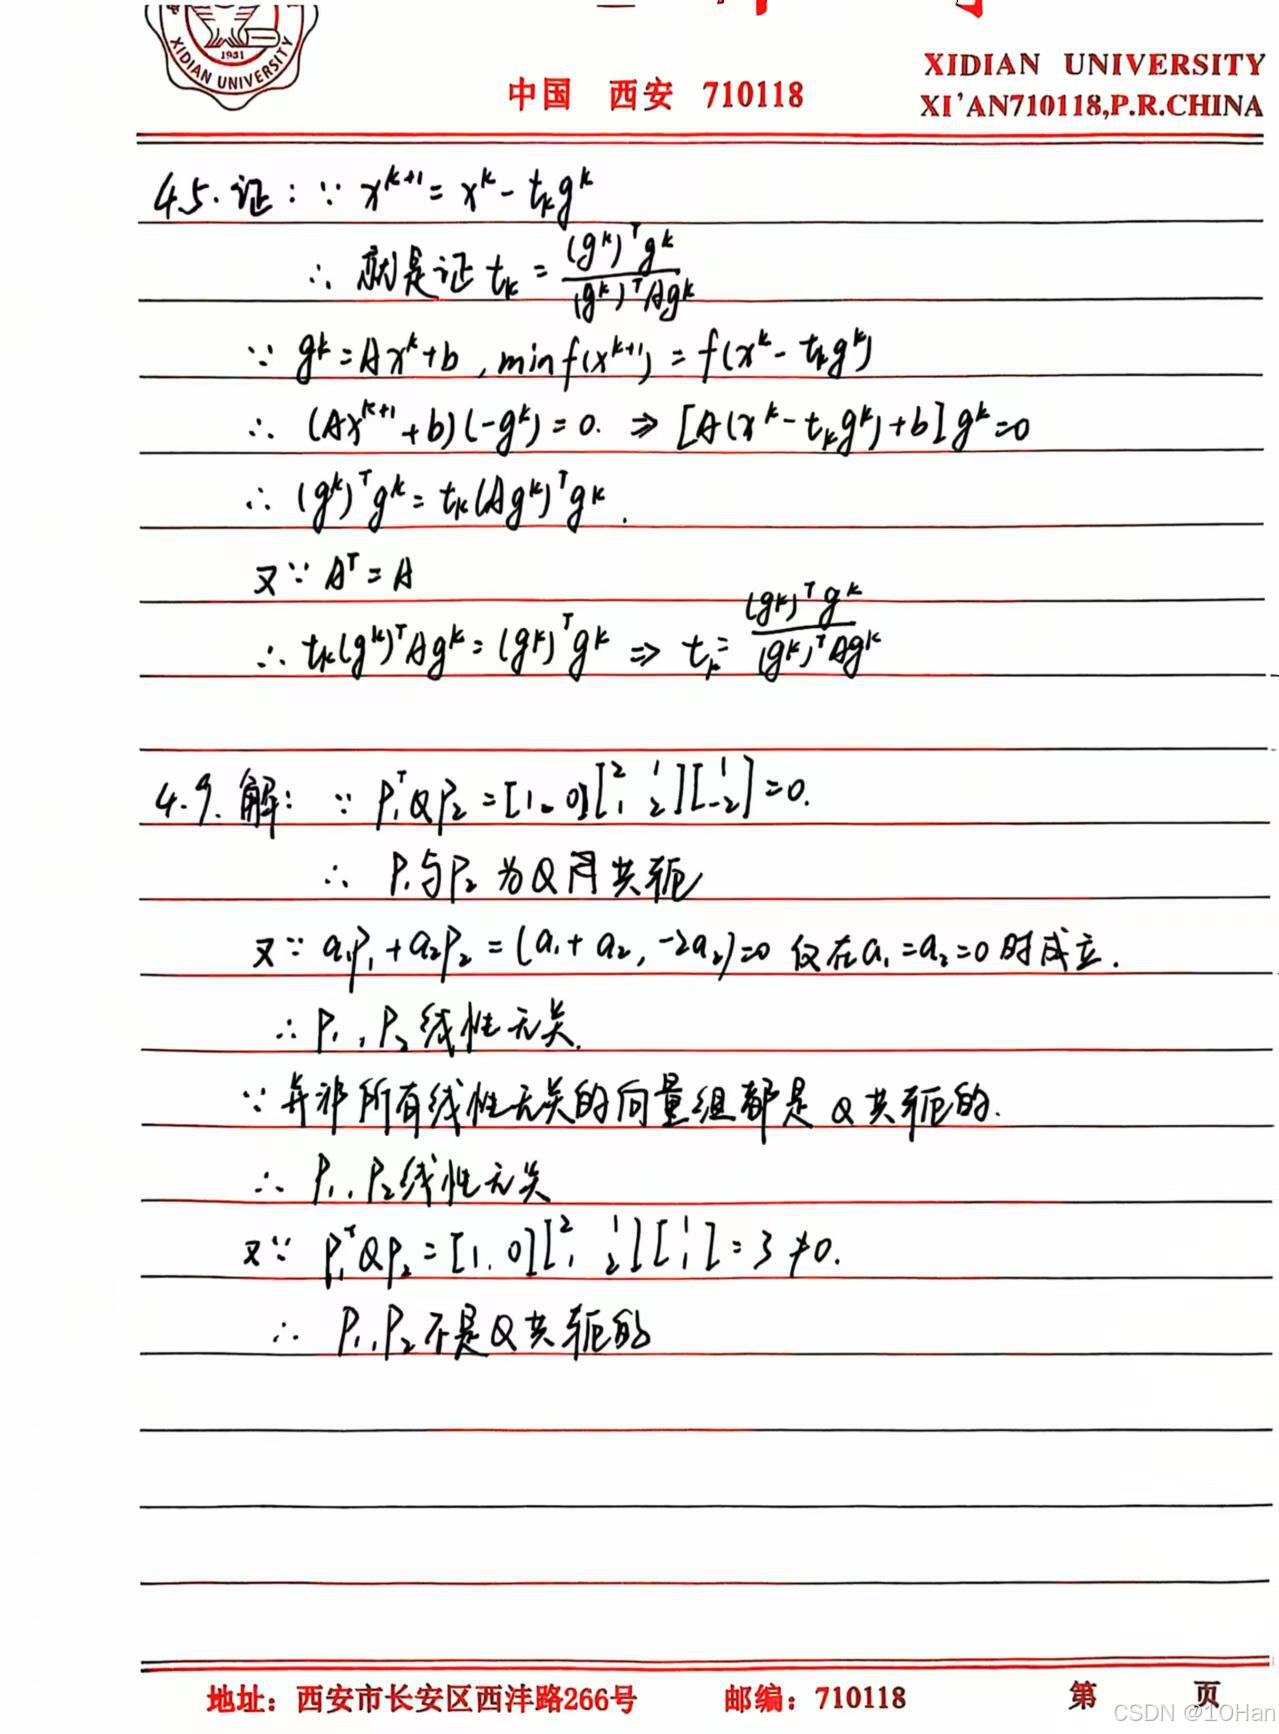 1931
XIDIAN UNIVERSITY
中国 西安 710118
XIDIAN UNIVERSITY
XI'AN710118,P.R.CHINA
4.5.证:∵ x^{k+1} = x^k - t_k g^k
∴ 就是证 t_k = \frac{(g^k)^T g^k}{(g^k)^T A g^k}
∵ g^k = Ax^k + b , min f(x^{k+1}) = f(x^k - t_k g^k)
∴ (Ax^{k+1} + b)(-g^k) = 0. ⇒ [A(x^k - t_k g^k) + b] g^k = 0
∴ (g^k)^T g^k = t_k (A g^k)^T g^k .
又∵ A^T = A
∴ t_k (g^k)^T A g^k = (g^k)^T g^k ⇒ t_k = \frac{(g^k)^T g^k}{(g^k)^T A g^k}
4.9. 解: ∵ P_1^T Q P_2 = [1 0] [2 1; 1 2] [1; -2] = 0.
∴ P_1 与 P_2 为 Q 共轭
又∵ a_1 P_1 + a_2 P_2 = (a_1 + a_2, -2a_2) = 0 仅在 a_1 = a_2 = 0 时成立.
∴ P_1, P_2 线性无关.
∵ 并非所有线性无关的向量组都是 Q 共轭的.
∴ P_1, P_2 线性无关
又∵ P_1^T Q P_2 = [1. 0] [2 1; 1 2] [1; 1] = 3 ≠ 0.
∴ P_1, P_2 不是 Q 共轭的
地址：西安市长安区西沣路266号 邮编：710118 第 页
CSDN @1OHan